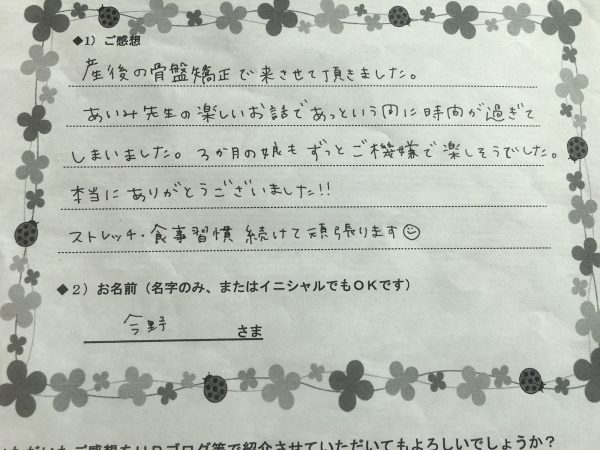 ◆1）ご感想
産後の骨盤矯正で来させて頂きました。
あいみ先生の楽しいお話であっという間に時間が過ぎて
しまいました。3か月の娘もずっとご機嫌で楽しそうでした。
本当にありがとうございました!!
ストレッチ・食事習慣 続けて頑張ります☺
◆2）お名前（名字のみ、またはイニシャルでもOKです）
今野 さま
いただいたご感想をHPブログ等で紹介させていただいてもよろしいでしょうか？